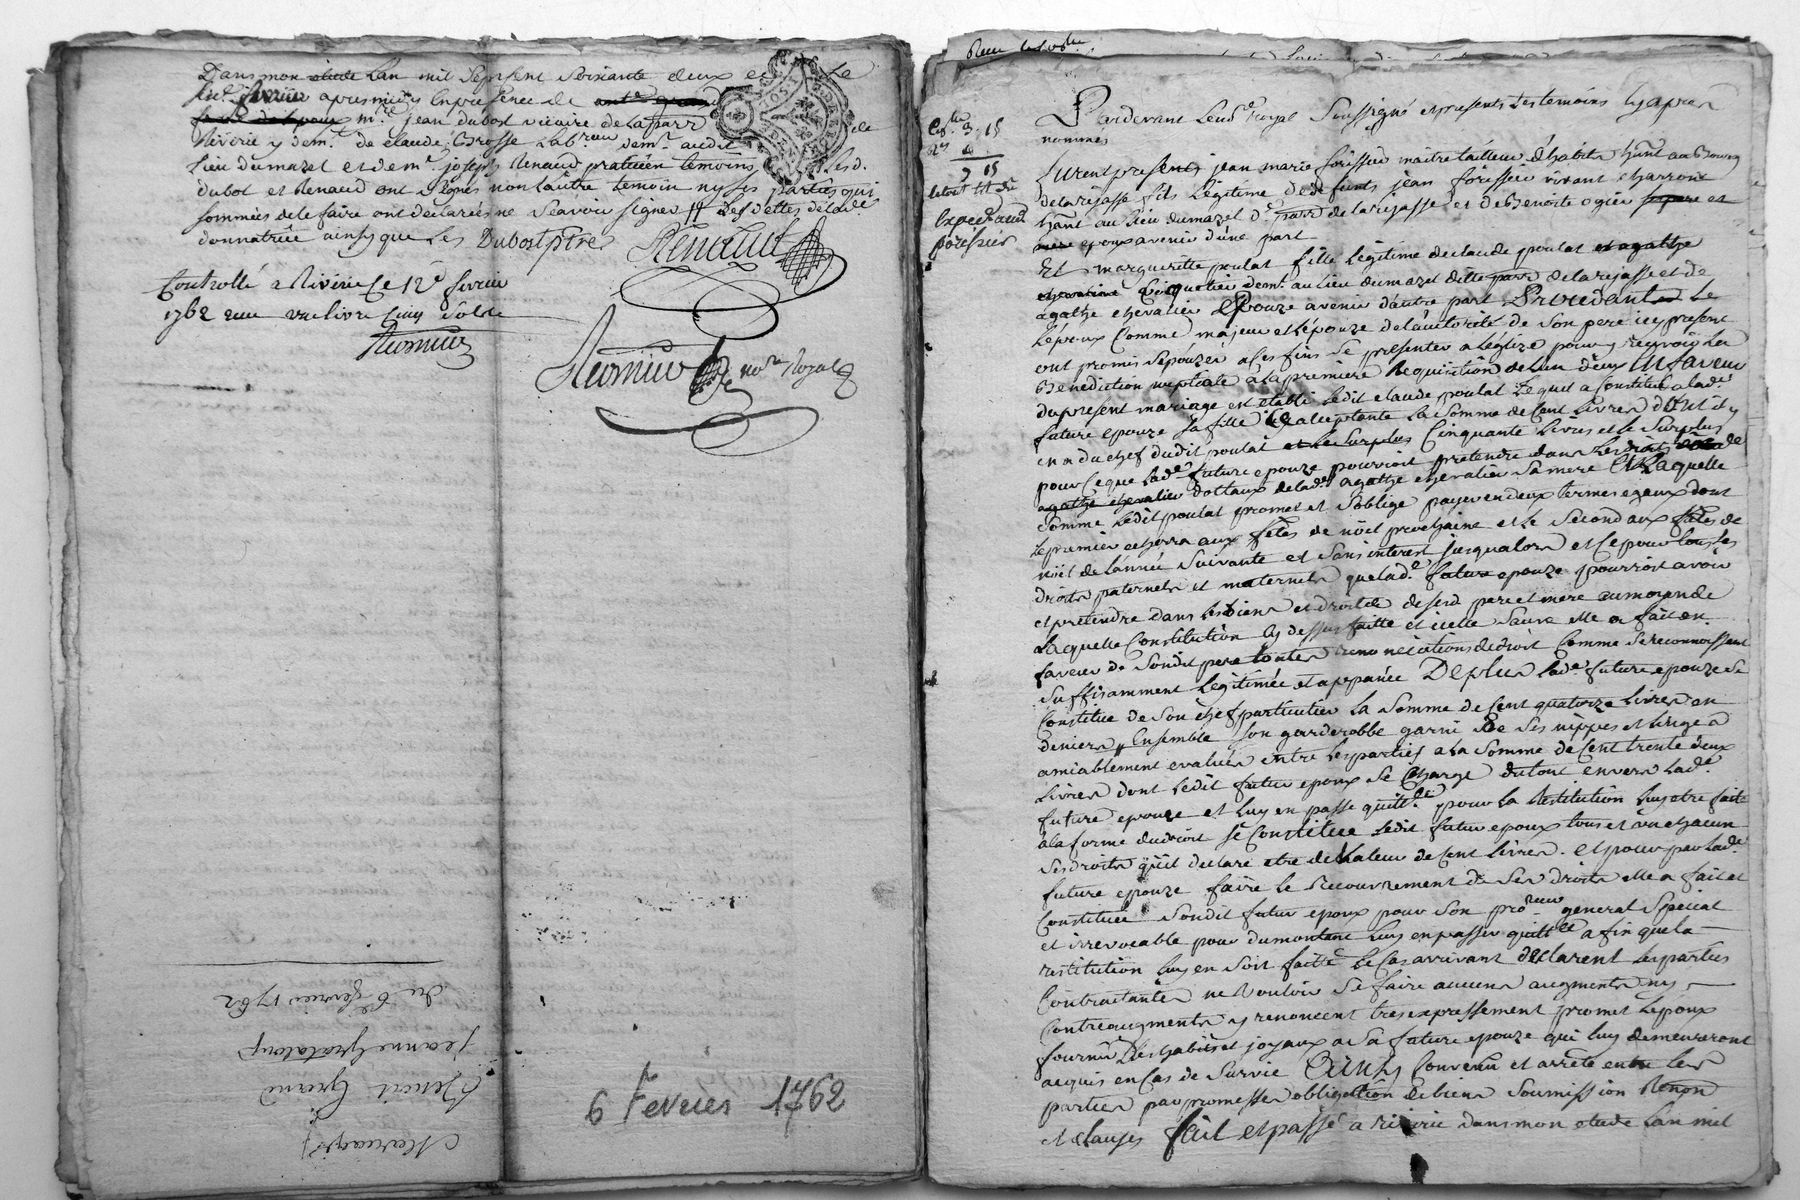 Dans mon etude Lan mil Sept Cent Soixante deux et Le
six.e fevrier apres midy En presence de
m.re jean dubost vicaire de la parr
Riverie y dem.t de claude Brosse Lab.reur dem.t audit
Lieu du mazel et de m.e joseph Renaud praticien temoins Lesd.
dubost et Renaud ont signés non Lautre temoin ny les parties qui
sommées de le faire ont declarées ne Scavoir signer
donnatrice ainsy que Les Dubost ptre Renaud
Controllé a Riverie Ce 12e fevrier
1762 reçu une livre Cinq sols
no.re Royal
du 6e fevrier 1762
jeanne Grataloup
Benoit
Mariage
6 Fevrier 1762
3 . 15
4
7 15
Expedié aud
forissier
Pardevant Le no.re royal Soussigné et presents Les temoins Cy apres
nommés
Furent presents jean marie forissier maitre tailleur d'habits h'ant au Bourg
de larajasse fils Legitime de defunts jean forissier vivant charron
h'ant au Lieu du mazel d.e parr de larajasse et de Benoite ogier
epoux avenir d'une part
Et margueritte poulat fille Legitime de claude poulat et agathe
dem.t au Lieu du mazel ditte parr de larajasse et de
agathe chevalier Epouze avenir d'autre part Procedant Le
Lépoux Comme majeur et Lépouze de Lautorité de Son pere icy present
ont promis Sepouzer a Ces fins Se presenter a Leglize pour y reçevoir La
Benediction nuptiale a La premiere Requisition de Lun deux En faveur
du present mariage est etabli Ledit claude poulat Lequel a Constitué a lad.e
future epouze sa fille acceptante La Somme de Cent Livres dont il y
en a du chef dudit poulat et Le Surplus Cinquante Livres et Le Surplus
pour Ce que lad.e future epouze pourroit pretendre dans Les droits
agathe chevalier dottaux de lad.e agathe chevalier Sa mere Et Laquelle
Somme Ledit poulat promet et S'oblige payer en deux termes egaux dont
Le premier echerra aux fêtes de nöel prochaine et Le Second aux fêtes de
nöel de Lannée Suivante et Sans interest jusqualors et Ce pour tous Les
droits paternels et maternels que lad.e future epouze pourroit avoir
et pretendre dans Les biens et droits de sesd pere et mere au moyen de
Laquelle Constitution Cy dessus faitte et icelle Sauve elle a fait en
faveur de Sondit pere toutes renonciations de droit Comme Se reconnoissent
Suffisamment Legitimée et apepanée De plus lad.e future epouze Se
Constitue de Son chef particulier La Somme de Cent quatorze Livres en
deniers Ensemble Son garderobbe garni de Ses nippes et Linge a
amiablement evaluées entre Les parties a La Somme de Cent trente deux
Livres dont Ledit futur epoux Se Charge du tout envers Lad.e
future epouze et Luy en passe quitt.ce pour La Restitution Luy etre faite
a la forme du droit Se Constitue Ledit futur epoux tous et un chacun
Ses droits qu'il declare etre de Valeur de Cent Livres . et pour par Lad.e
future epouze faire Le Recouvrement de Ses droits elle a fait et
Constitué Sondit futur epoux pour Son pro.reur general Special
et irrevocable pour du montant Luy en passer quitt.ce afin que la
restitution Luy en Soit faitte Le Cas arrivant declarent Les parties
Contractantes ne Vouloir Se faire aucuns augments ny
Contreaugments y renoncent tres expressement promet Lepoux
fournir Des habits et joyaux a Sa future epouze qui Luy demeureront
acquis en Cas de Survie Ainsy Convenu et arreté entre Les
parties par promesses obligation de biens Soumission Renon
et clauses fait et passé a riverie dans mon etude Lan mil